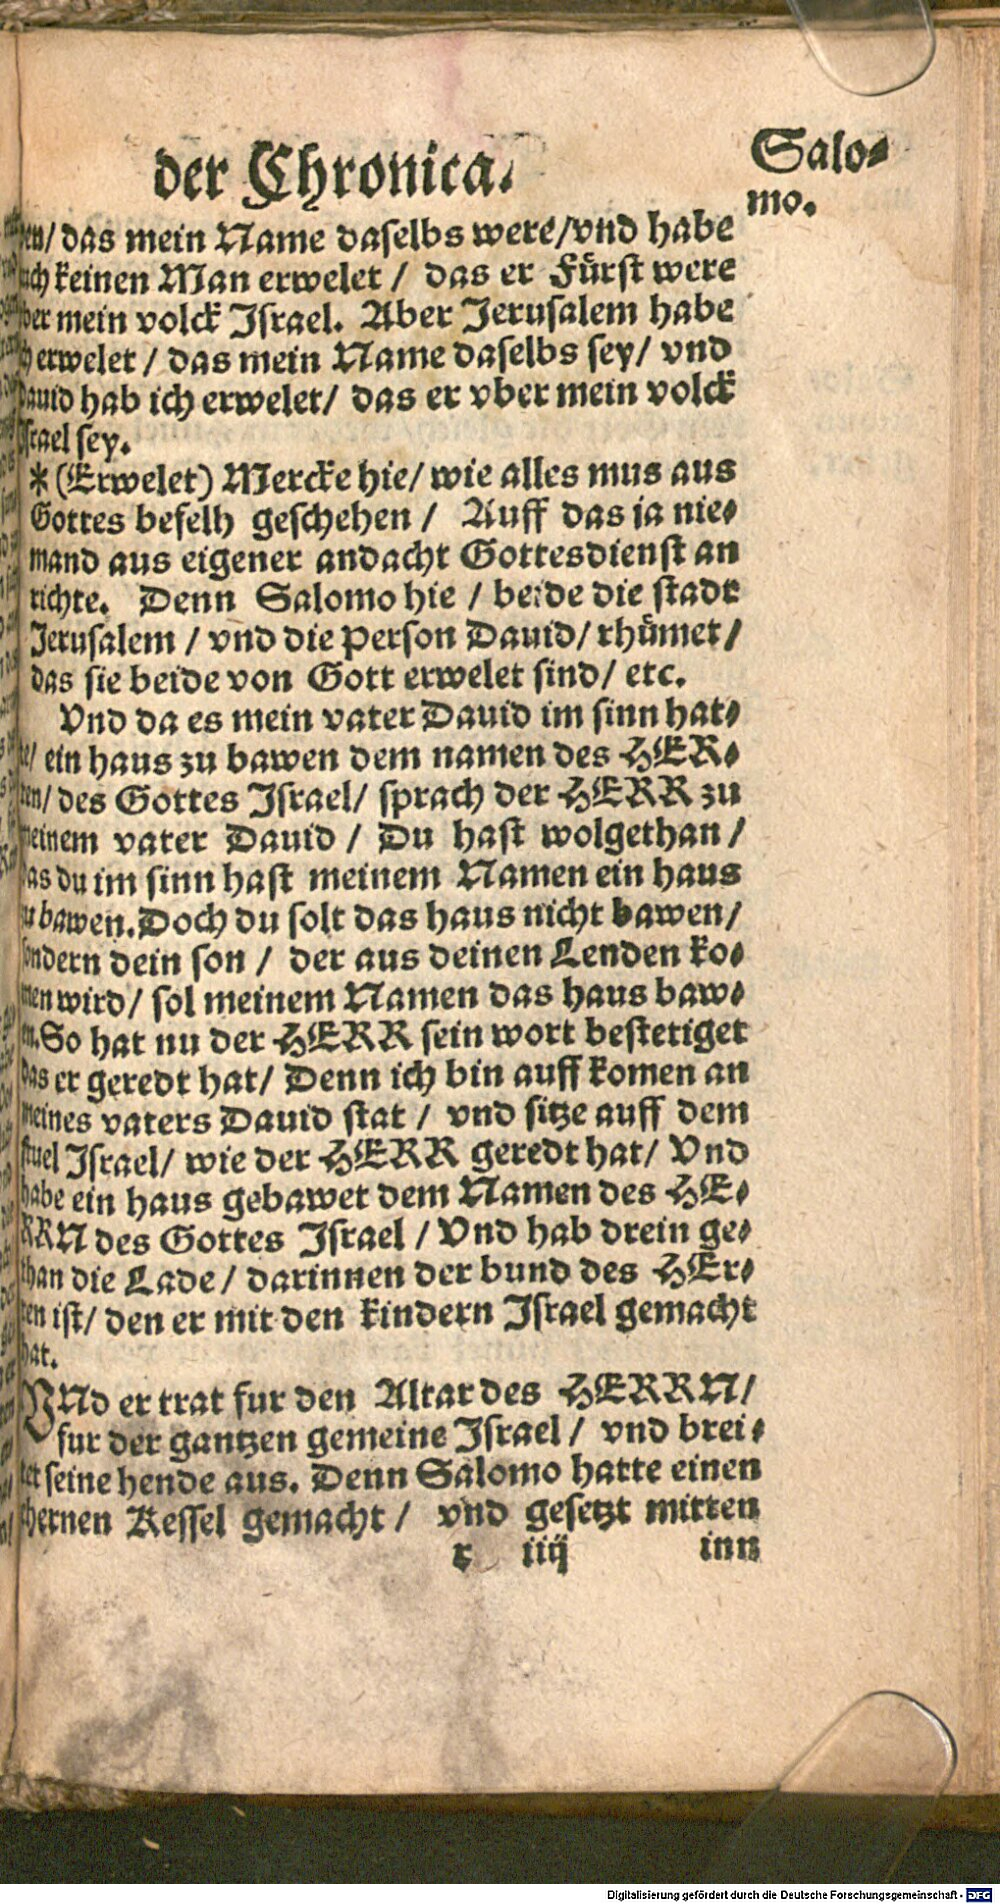 der Chronica.
Salo⸗
mo.
en/ das mein Name daselbs were/vnd habe
ich keinen Man erwelet / das er Fürst were
ber mein volck Israel. Aber Jerusalem habe
erwelet / das mein Name daselbs sey/ vnd
Dauid hab ich erwelet/ das er vber mein volck
Israel sey.
* (Erwelet) Mercke hie/ wie alles mus aus
Gottes befelh geschehen / Auff das ja nie⸗
mand aus eigener andacht Gottesdienst an
richte. Denn Salomo hie / beide die stadt
Jerusalem / vnd die person Dauid/ rhümet/
das sie beide von Gott erwelet sind/ etc.
Vnd da es mein vater Dauid im sinn hat⸗
te/ ein haus zu bawen dem namen des HER⸗
ren/ des Gottes Israel/ sprach der HERR zu
meinem vater Dauid / Du hast wolgethan/
das du im sinn hast meinem Namen ein haus
zu bawen. Doch du solt das haus nicht bawen/
sondern dein son / der aus deinen Lenden ko⸗
men wird/ sol meinem Namen das haus baw⸗
en. So hat nu der HERR sein wort bestetiget
das er geredt hat/ Denn ich bin auff komen an
meines vaters Dauid stat / vnd sitze auff dem
stuel Israel/ wie der HERR geredt hat/ Vnd
habe ein haus gebawet dem Namen des HE⸗
RRN des Gottes Israel / Vnd hab drein ge⸗
than die Lade/ darinnen der bund des HEr⸗
ren ist/ den er mit den kindern Israel gemacht
hat.
VNd er trat fur den Altar des HERRN/
fur der gantzen gemeine Israel / vnd brei⸗
tet seine hende aus. Denn Salomo hatte einen
ehernen Kessel gemacht / vnd gesetzt mitten
r iiij inn
Digitalisierung gefördert durch die Deutsche Forschungsgemeinschaft - DFG